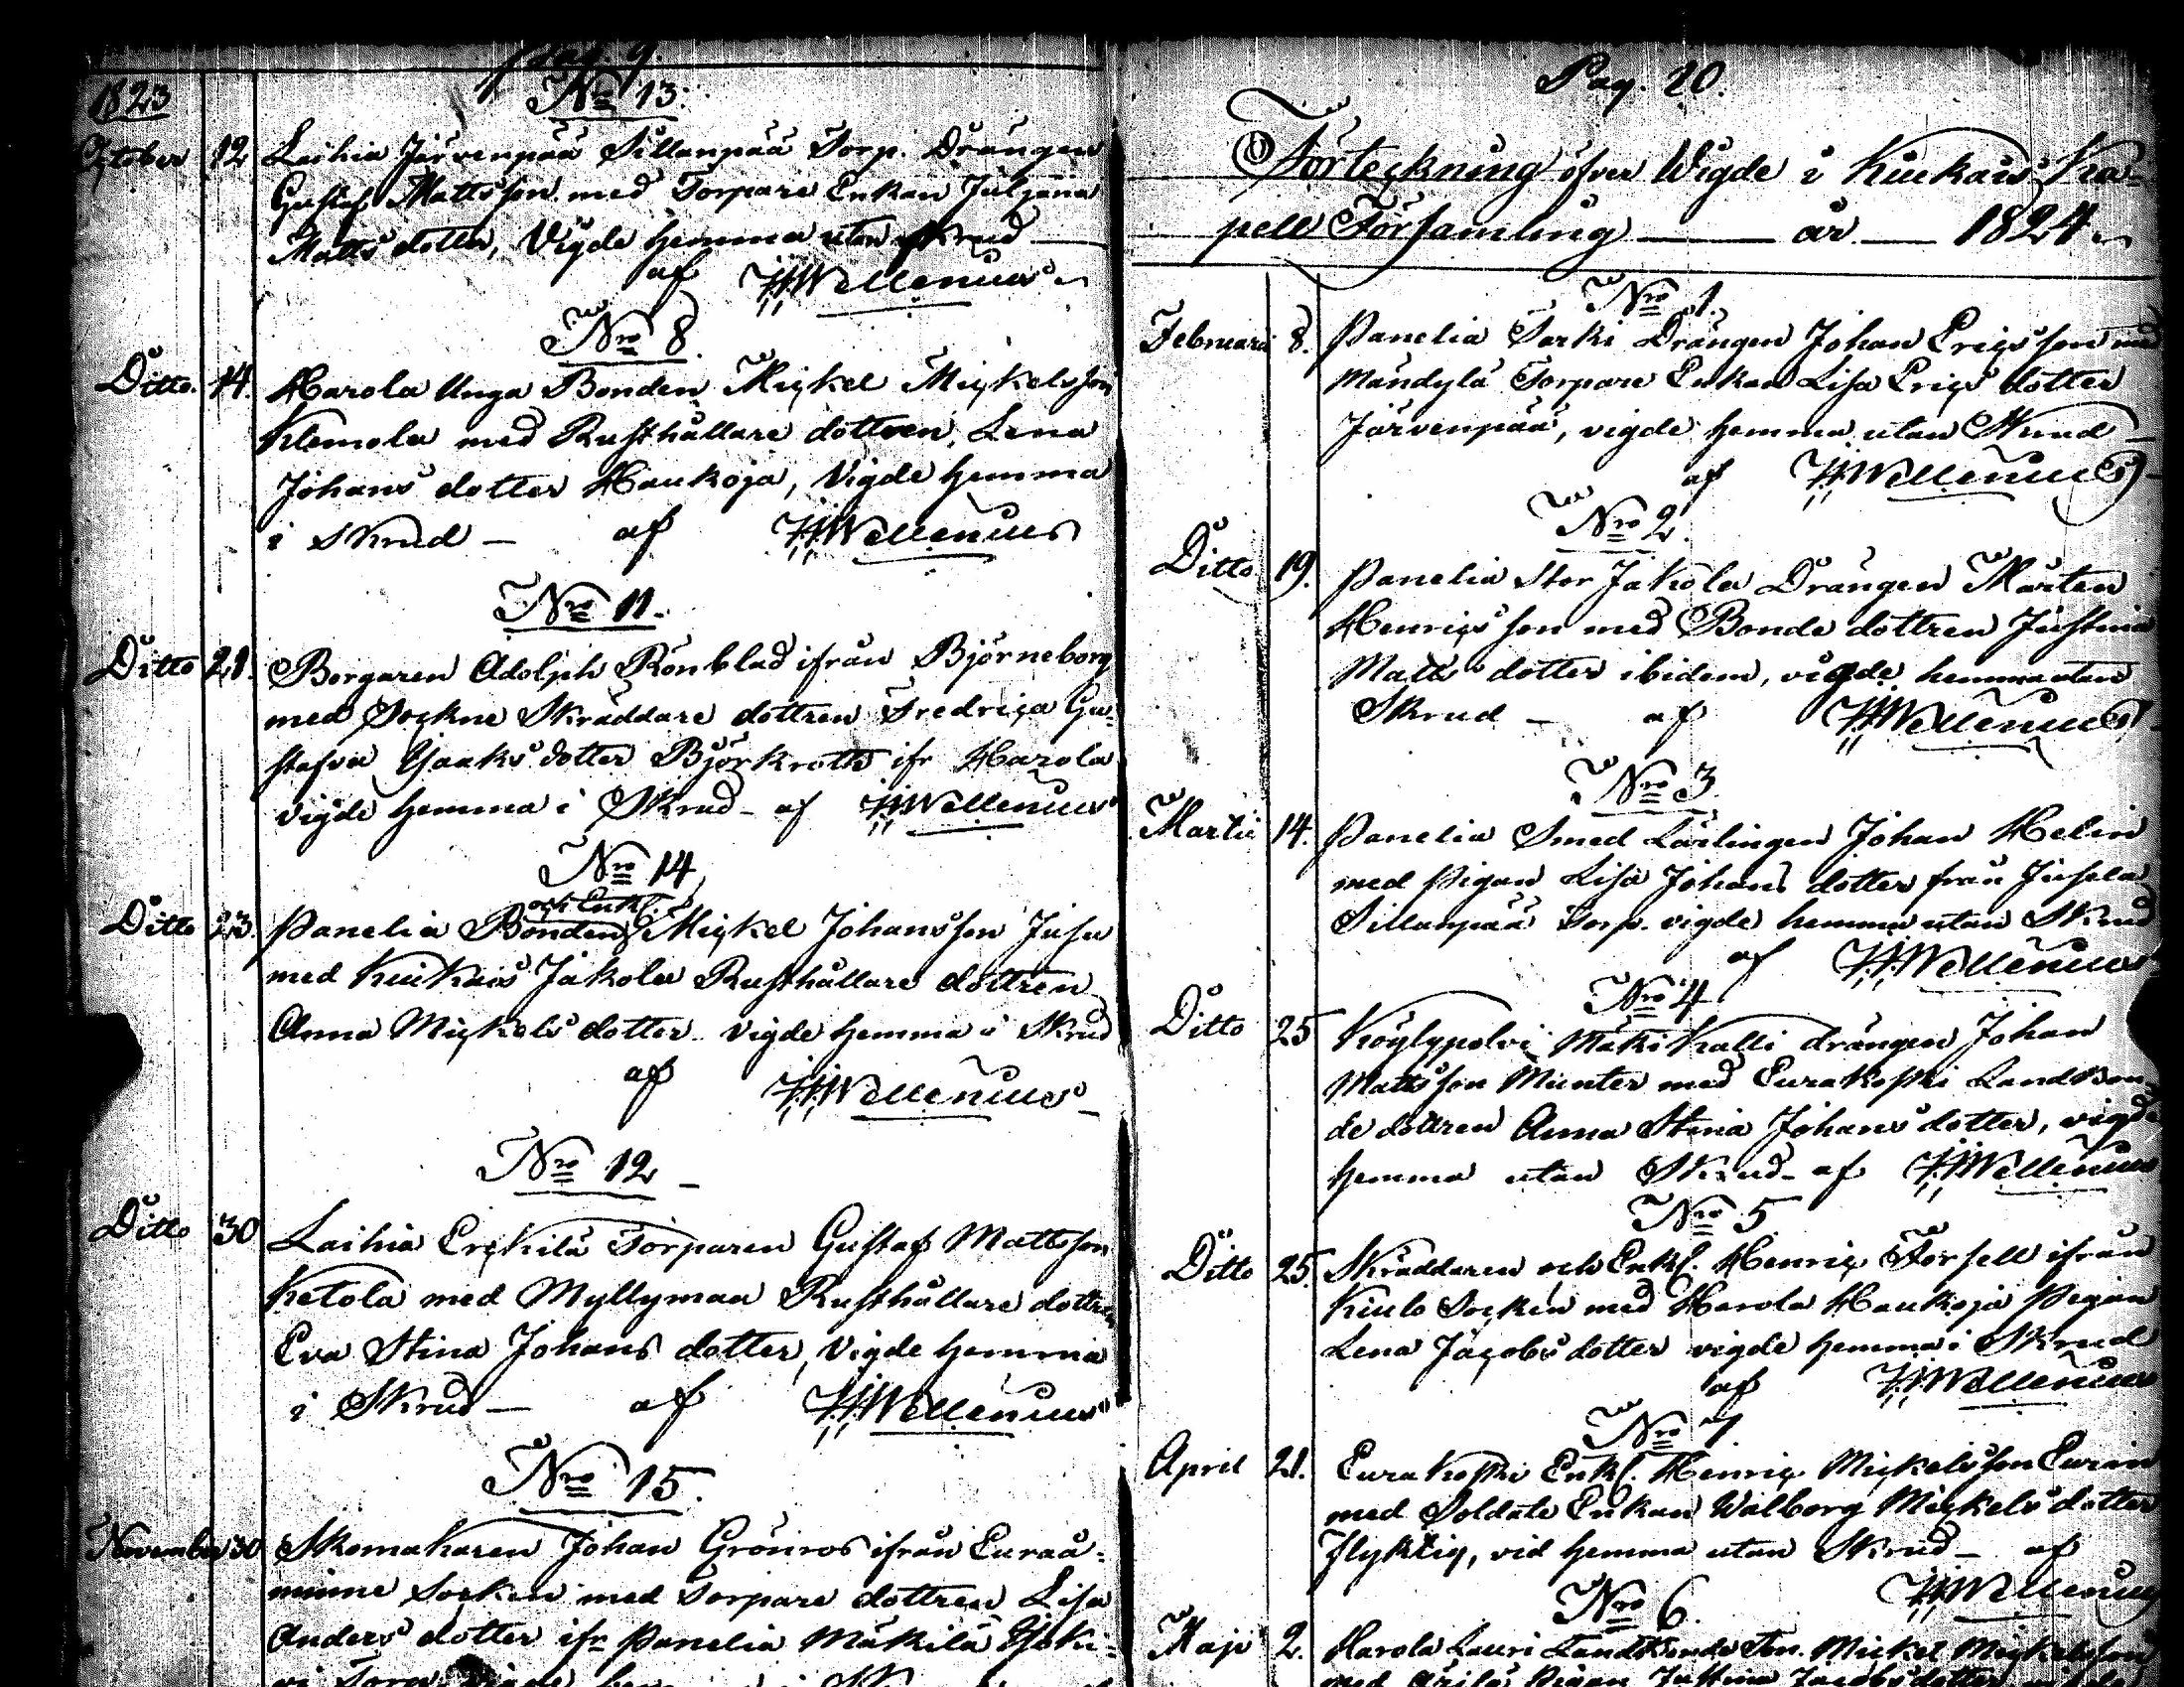 pag. 9.
1823
No 13.
October 12 Laihia Järvenpää Sillanpää Torp. Drängen
Gustaf Mattsson med Torpare Enkan Juljana
Matts dotter, Vigde hemma utan Skrud
af HWellenius
Nro 8.
Ditto. 14. Harola Unga Bonden Mickel Mickelsson
Klemola med Rusthållare dottren, Lena
Johans dotter Haukoja, Vigde hemma
i Skrud — af HWellenius
Nro 11.
Ditto 21. Borgaren Adolph Rönblad ifrån Björneborg
med Sockne Skräddare dottren Fredrica Gu-
stafva Isaks dotter Björkroth ifr Harola
vigde hemma i Skrud - af HWellenius
Nro 14
och Enkl.
Ditto 23. Panelia Bonden Mickel Johansson Jusu
med Kiukais Jakola Rusthållare dottren
Anna Mickels dotter vigde hemma i Skrud
af HWellenius
Nro 12
Ditto 30 Laihia Erckilä Torparen Gustaf Mattsson
Ketola med Myllymaa Rusthållare dottren
Eva Stina Johans dotter, Vigde hemma
i Skrud — af HWellenius
Nro 15.
November 30 Skomakaren Johan Grönros ifrån Euraå-
minne Socken med Torpare dottren Lisa
Anders dotter ifr Panelia Mäkilä
Torp. Vigde
Pag. 20.
Förteckning öfver Wigde i Kiukais Ka-
pell Församling — år — 1824.
Nro 1.
Februarii 8. Panelia Sarki Drängen Johan Ericsson med
Mändylä Torpare Enkan Lisa Erics dotter
Järvenpää, vigde hemma utan Skrud
af HWellenius
Nro 2.
Ditto 19. Panelia Stor Jakola Drängen Mårten
Henricsson med Bonde dottren Justina
Matts dotter ibidem, vigde hemma utan
Skrud — af HWellenius
Nro 3.
Martii 14. Panelia Smed Lärlingen Johan Helin
med Pigan Lisa Johans dotter från Jusela
Sillanpää Torp. vigde hemma utan Skrud
af HWellenius
Nro 4
Ditto 25 Köylypolvi Mäki Kalli drängen Johan
Mattsson Munter med Eurakoski Landbon-
de dottren Anna Stina Johans dotter, vigde
hemma utan Skrud - af HWellenius
Nro 5
Ditto 25. Skräddaren och Enkl. Henric Forsell ifrån
Kiulo Socken med Harola Haukoja Pigan
Lena Jacobs dotter vigde hemma i Skrud
af HWellenius
Nro 7
April 21. Eurakoski Enkl. Henric Mickelsson Eurén
med Soldate Enkan Walborg Mickels dotter
Flyktig, vid hemma utan Skrud — af
HWellenius
Nro 6.
Maji 2. Harola Lauri Landbonde Son. Mickel Mickelsson
med Ärilä Pigan Justina Jacobsdotter